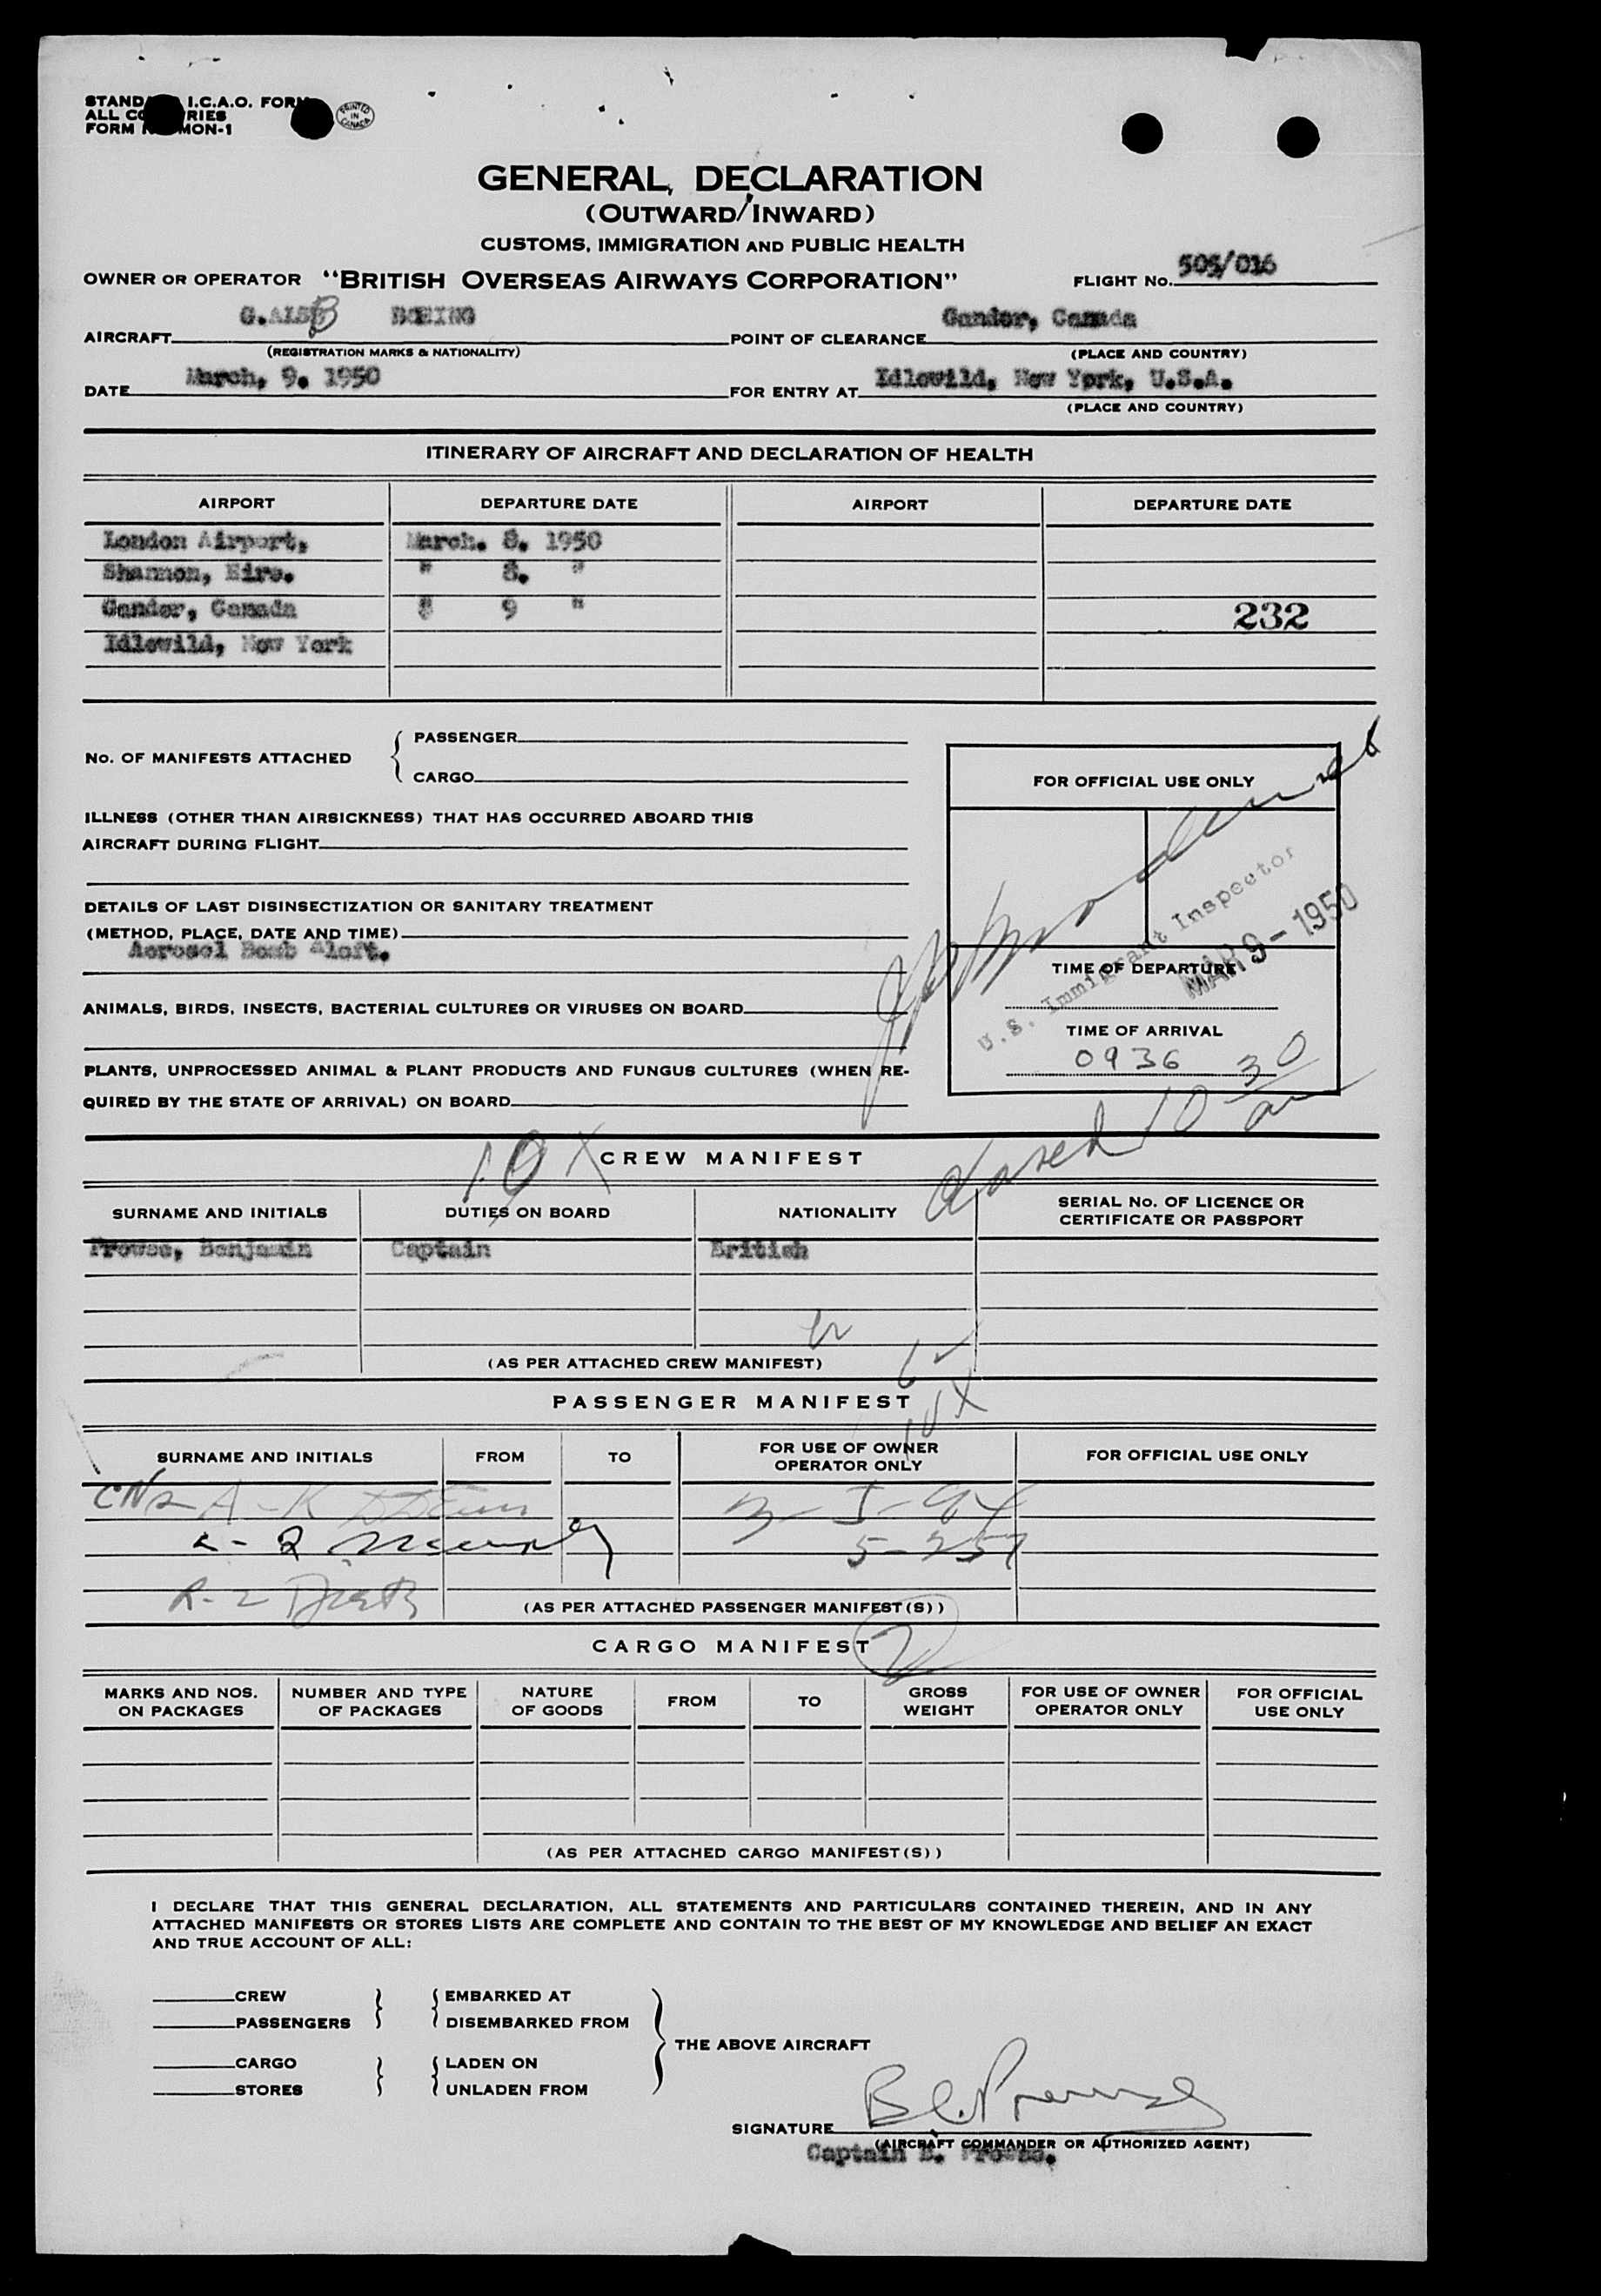 STAND I.C.A.O. FORM
ALL CO RIES
FORM MON-1
PRINTED IN CANADA
GENERAL DECLARATION
(OUTWARD/INWARD)
CUSTOMS, IMMIGRATION AND PUBLIC HEALTH
OWNER OR OPERATOR "BRITISH OVERSEAS AIRWAYS CORPORATION" FLIGHT No. 505/016
AIRCRAFT BOEING POINT OF CLEARANCE Gander, Canada
(REGISTRATION MARKS & NATIONALITY) (PLACE AND COUNTRY)
DATE March, 9. 1950 FOR ENTRY AT Idlewild, New York, U.S.A.
(PLACE AND COUNTRY)
ITINERARY OF AIRCRAFT AND DECLARATION OF HEALTH
AIRPORT DEPARTURE DATE AIRPORT DEPARTURE DATE
London Airport, March. 8. 1950
Shannon, Eire. " 8. "
Gander, Canada " 9 " 232
Idlewild, New York
No. OF MANIFESTS ATTACHED { PASSENGER
CARGO
FOR OFFICIAL USE ONLY
ILLNESS (OTHER THAN AIRSICKNESS) THAT HAS OCCURRED ABOARD THIS
AIRCRAFT DURING FLIGHT
DETAILS OF LAST DISINSECTIZATION OR SANITARY TREATMENT
(METHOD, PLACE, DATE AND TIME)
Aerosol Bomb Aloft.
U.S. Immigrant Inspector
MAR 9 - 1950
TIME OF DEPARTURE
ANIMALS, BIRDS, INSECTS, BACTERIAL CULTURES OR VIRUSES ON BOARD
TIME OF ARRIVAL
0936
PLANTS, UNPROCESSED ANIMAL & PLANT PRODUCTS AND FUNGUS CULTURES (WHEN RE-
QUIRED BY THE STATE OF ARRIVAL) ON BOARD
closed 10 30 am
10 X CREW MANIFEST
SURNAME AND INITIALS DUTIES ON BOARD NATIONALITY SERIAL No. OF LICENCE OR
CERTIFICATE OR PASSPORT
Prowse, Benjamin Captain British
(AS PER ATTACHED CREW MANIFEST)
PASSENGER MANIFEST
SURNAME AND INITIALS FROM TO FOR USE OF OWNER
OPERATOR ONLY FOR OFFICIAL USE ONLY
A - K
R - Z
(AS PER ATTACHED PASSENGER MANIFEST(S))
CARGO MANIFEST 2
MARKS AND NOS.
ON PACKAGES NUMBER AND TYPE
OF PACKAGES NATURE
OF GOODS FROM TO GROSS
WEIGHT FOR USE OF OWNER
OPERATOR ONLY FOR OFFICIAL
USE ONLY
(AS PER ATTACHED CARGO MANIFEST(S))
I DECLARE THAT THIS GENERAL DECLARATION, ALL STATEMENTS AND PARTICULARS CONTAINED THEREIN, AND IN ANY
ATTACHED MANIFESTS OR STORES LISTS ARE COMPLETE AND CONTAIN TO THE BEST OF MY KNOWLEDGE AND BELIEF AN EXACT
AND TRUE ACCOUNT OF ALL:
CREW } { EMBARKED AT
PASSENGERS } { DISEMBARKED FROM
} THE ABOVE AIRCRAFT
CARGO } { LADEN ON
STORES } { UNLADEN FROM
SIGNATURE B C. Prowse
(AIRCRAFT COMMANDER OR AUTHORIZED AGENT)
Captain B. Prowse.